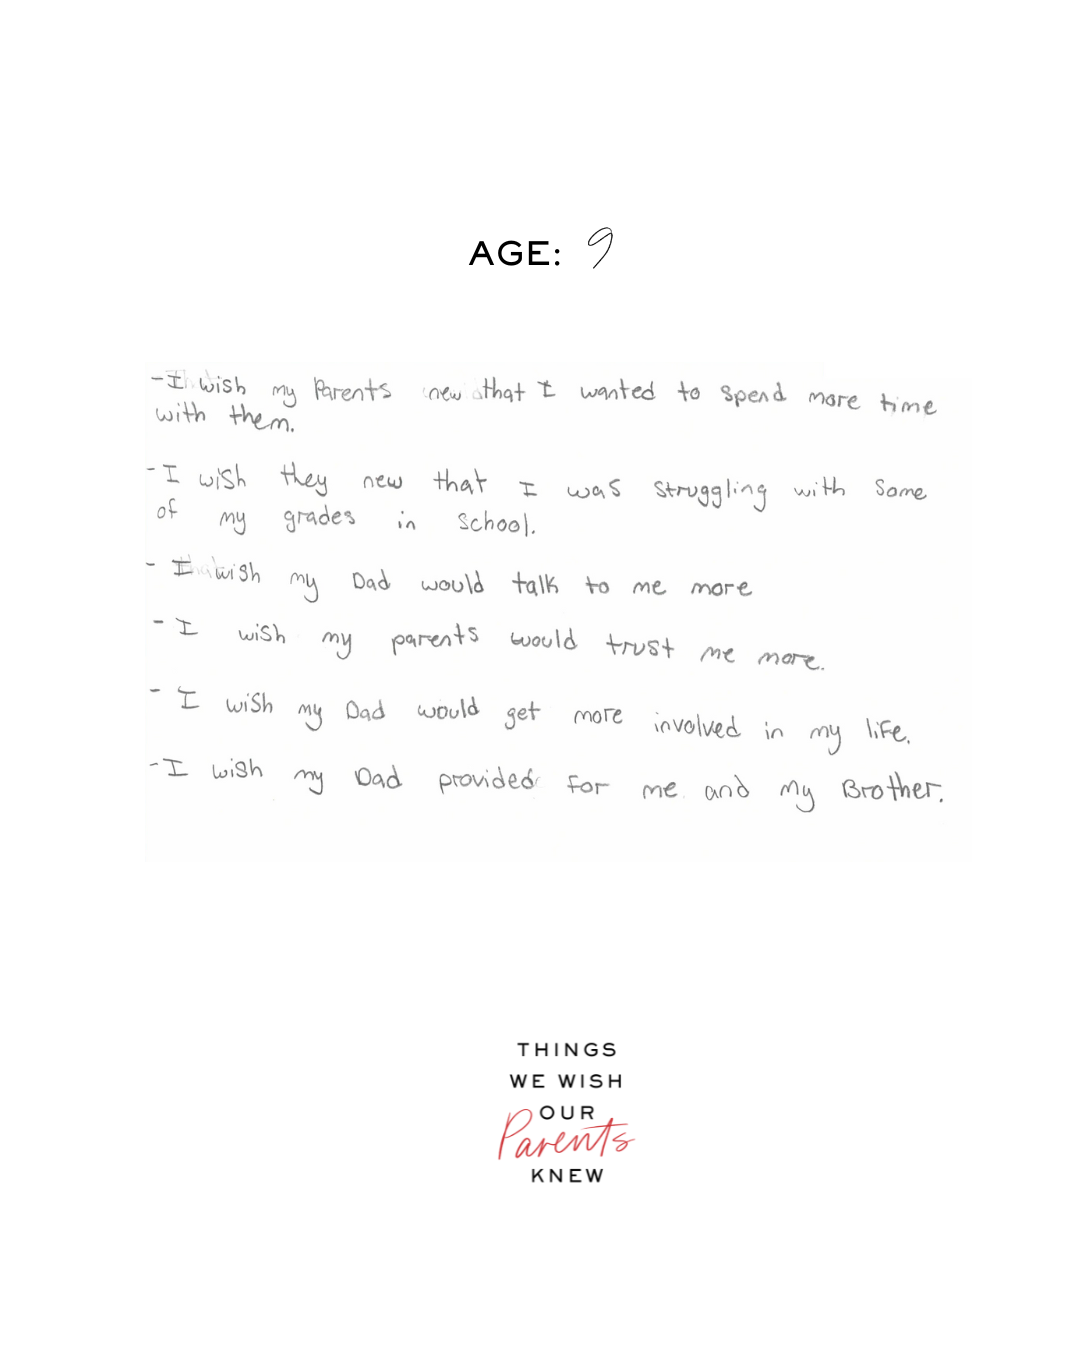 AGE: 9
-I wish my Parents new that I wanted to spend more time
with them.
-I wish they new that I was struggling with some
of my grades in school.
- I wish my Dad would talk to me more
-I wish my parents would trust me more.
- I wish my Dad would get more involved in my life.
-I wish my Dad provided for me and my Brother.
THINGS
WE WISH
OUR
Parents
KNEW